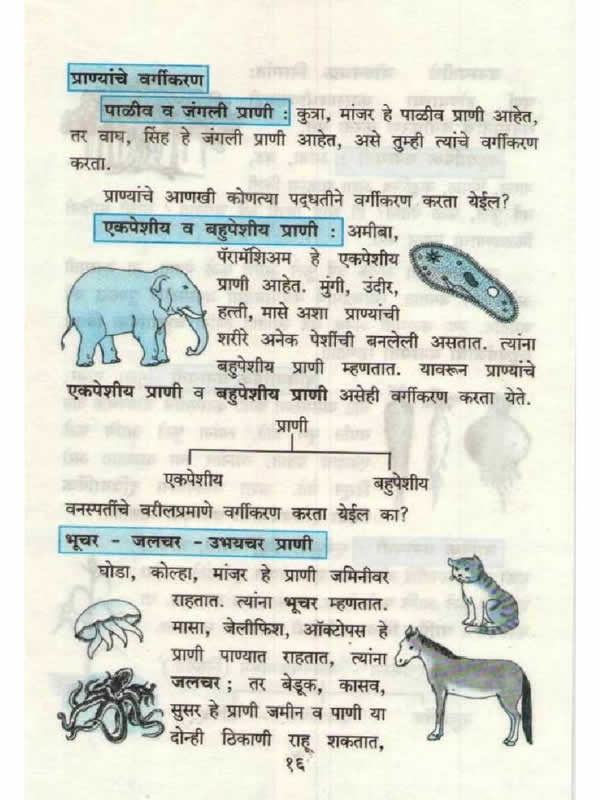 प्राण्यांचे वर्गीकरण
पाळीव व जंगली प्राणी : कुत्रा, मांजर हे पाळीव प्राणी आहेत,
तर वाघ, सिंह हे जंगली प्राणी आहेत, असे तुम्ही त्यांचे वर्गीकरण
करता.
प्राण्यांचे आणखी कोणत्या पद्धतीने वर्गीकरण करता येईल?
एकपेशीय व बहुपेशीय प्राणी : अमीबा,
पॅरामॅशिअम हे एकपेशीय
प्राणी आहेत. मुंगी, उंदीर,
हत्ती, मासे अशा प्राण्यांची
शरीरे अनेक पेशींची बनलेली असतात. त्यांना
बहुपेशीय प्राणी म्हणतात. यावरून प्राण्यांचे
एकपेशीय प्राणी व बहुपेशीय प्राणी असेही वर्गीकरण करता येते.
प्राणी
एकपेशीय बहुपेशीय
वनस्पतींचे वरीलप्रमाणे वर्गीकरण करता येईल का?
भूचर - जलचर - उभयचर प्राणी
घोडा, कोल्हा, मांजर हे प्राणी जमिनीवर
राहतात. त्यांना भूचर म्हणतात.
मासा, जेलीफिश, ऑक्टोपस हे
प्राणी पाण्यात राहतात, त्यांना
जलचर ; तर बेडूक, कासव,
सुसर हे प्राणी जमीन व पाणी या
दोन्ही ठिकाणी राहू शकतात,
१६